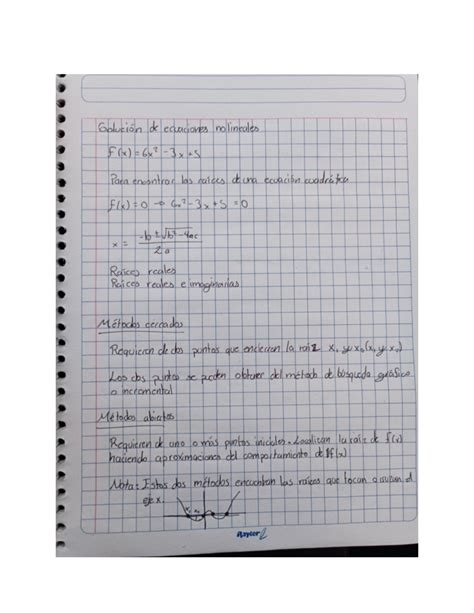 Solución de ecuaciones no lineales
f(x)=6x²-3x+5
Para encontrar las raíces de una ecuación cuadrática
f(x)=0 → 6x²-3x+5=0
x = -b±√b²-4ac / 2a
Raíces reales
Raíces reales e imaginarias
Métodos cerrados
Requieren de dos puntos que encierran la raíz
Los dos puntos se pueden obtener del método de búsqueda gráfico
o incremental
Métodos abiertos
Requieren de uno o más puntos iniciales. Localizan la raíz de f(x)
haciendo aproximaciones del comportamiento de f(x)
Nota: Estos dos métodos encuentran las raíces que tocan o cruzan el
eje x.